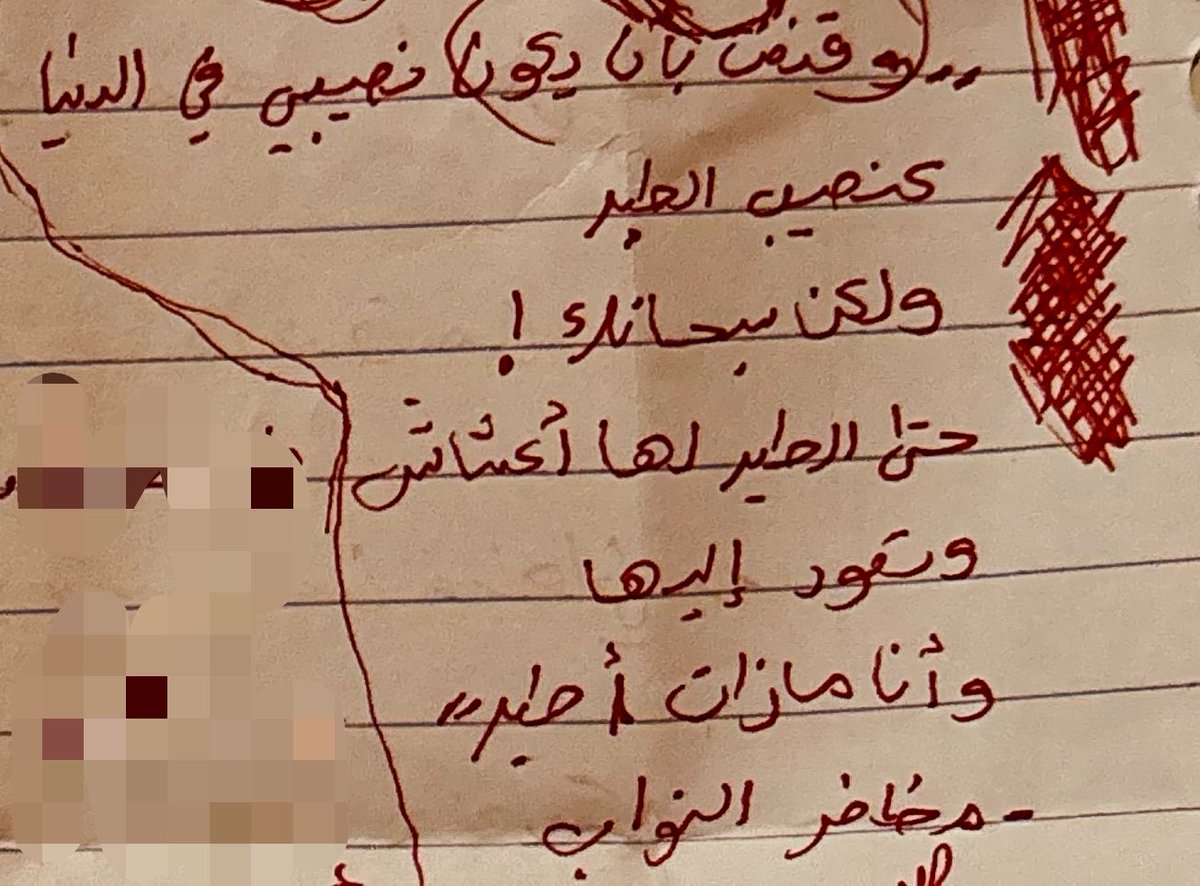 ,, وقنعت بأن يكون نصيبي في الدنيا
كنصيب الطير
ولكن سبحانك !
حتى الطير لها أعشاش
وتعود إليها
وأنا مازلت أطير ,,
- مظفر النواب